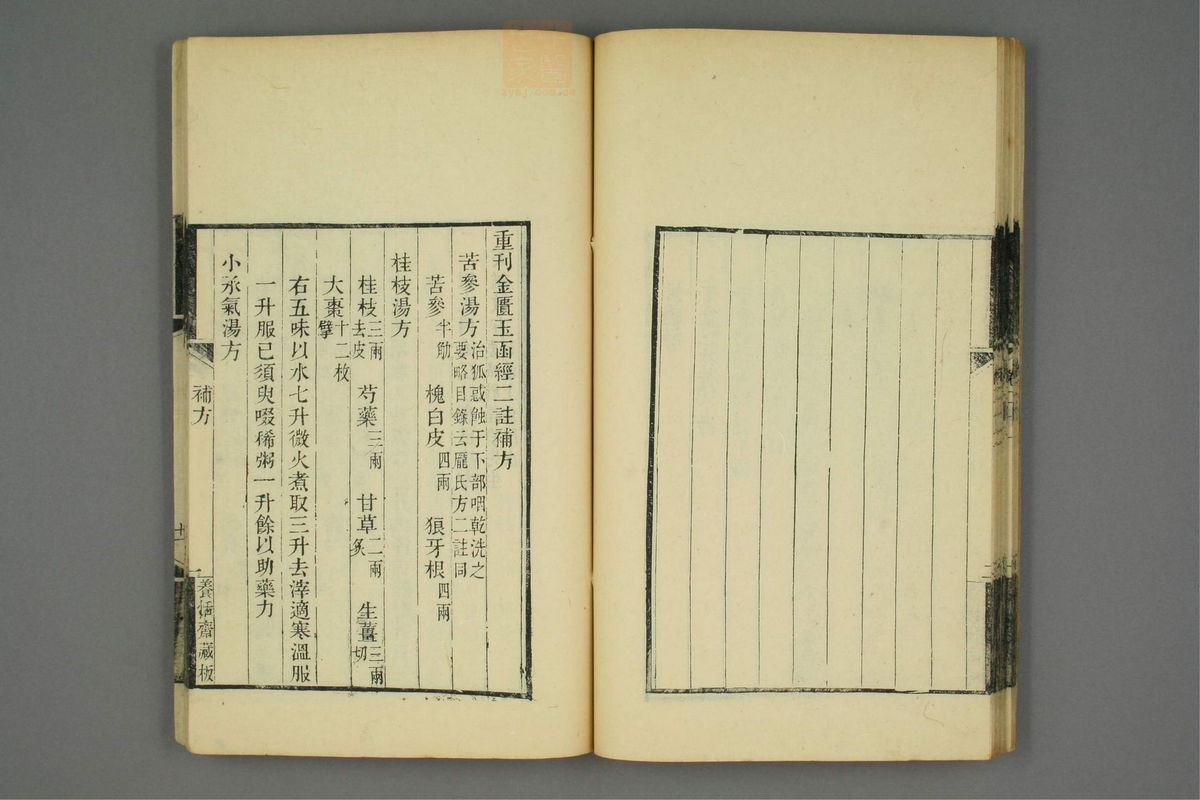 重刊金匱玉函經二註補方
苦參湯方治狐惑蝕于下部咽乾洗之
要略目錄云龐氏方二註同
苦參半觔 槐白皮四兩 狼牙根四兩
桂枝湯方
桂枝三兩去皮 芍藥三兩 甘草二兩炙 生薑三兩切
大棗十二枚擘
右五味以水七升微火煮取三升去滓適寒溫服
一升服已須臾啜稀粥一升餘以助藥力
小承氣湯方
補方
十一
養恬齋藏板